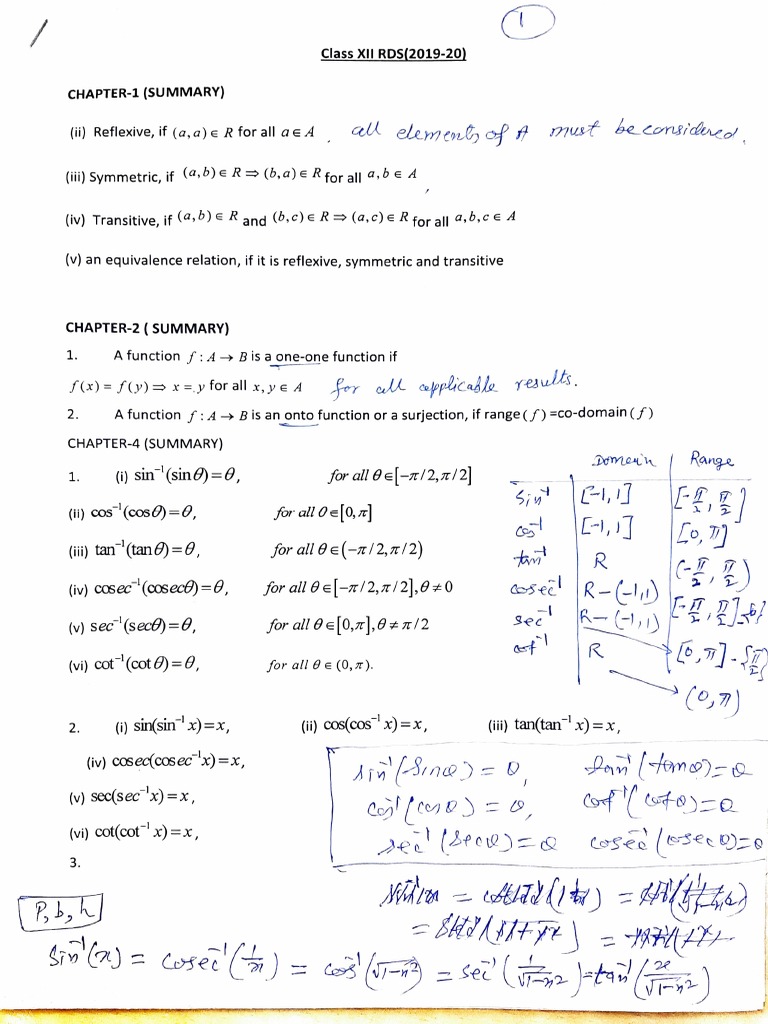 1
Class XII RDS(2019-20)
CHAPTER-1 (SUMMARY)
(ii) Reflexive, if (a,a)∈ R for all a∈ A , all elements of A must be considered.
(iii) Symmetric, if (a,b)∈ R ⇒ (b,a)∈ R for all a,b ∈ A ,
(iv) Transitive, if (a,b)∈ R and (b,c)∈ R ⇒ (a,c)∈ R for all a,b,c ∈ A
(v) an equivalence relation, if it is reflexive, symmetric and transitive
CHAPTER-2 ( SUMMARY)
1. A function f : A → B is a one-one function if
f(x) = f(y) ⇒ x = y for all x, y ∈ A for all applicable results.
2. A function f : A → B is an onto function or a surjection, if range(f) =co-domain(f)
CHAPTER-4 (SUMMARY)
Domain Range
1. (i) sin⁻¹(sinθ)=θ, for all θ∈[−π/2,π/2] sin⁻¹ [-1,1] [-π/2, π/2]
(ii) cos⁻¹(cosθ)=θ, for all θ∈[0,π] cos⁻¹ [-1,1] [0,π]
(iii) tan⁻¹(tanθ)=θ, for all θ∈(−π/2,π/2) tan⁻¹ R (-π/2, π/2)
(iv) cosec⁻¹(cosecθ)=θ, for all θ∈[−π/2,π/2],θ≠0 cosec⁻¹ R-(-1,1) [-π/2, π/2]-{0}
(v) sec⁻¹(secθ)=θ, for all θ∈[0,π],θ≠π/2 sec⁻¹ R-(-1,1) [0,π]-{π/2}
(vi) cot⁻¹(cotθ)=θ, for all θ∈(0,π). cot⁻¹ R (0,π)
2. (i) sin(sin⁻¹ x)=x, (ii) cos(cos⁻¹ x)=x, (iii) tan(tan⁻¹ x)=x,
(iv) cosec(cosec⁻¹x)=x,
(v) sec(sec⁻¹x)=x,
(vi) cot(cot⁻¹ x)=x,
sin⁻¹(sinθ) = θ, tan⁻¹(tanθ)=θ
cos⁻¹(cosθ) = θ, cot⁻¹(cotθ)=θ
sec⁻¹(secθ)=θ cosec⁻¹(cosecθ)=θ
3.
P, b, h
sin⁻¹(x) = cosec⁻¹(1/x) = cos⁻¹(√1-x²) = sec⁻¹(1/√1-x²)=tan⁻¹(x/√1-x²)